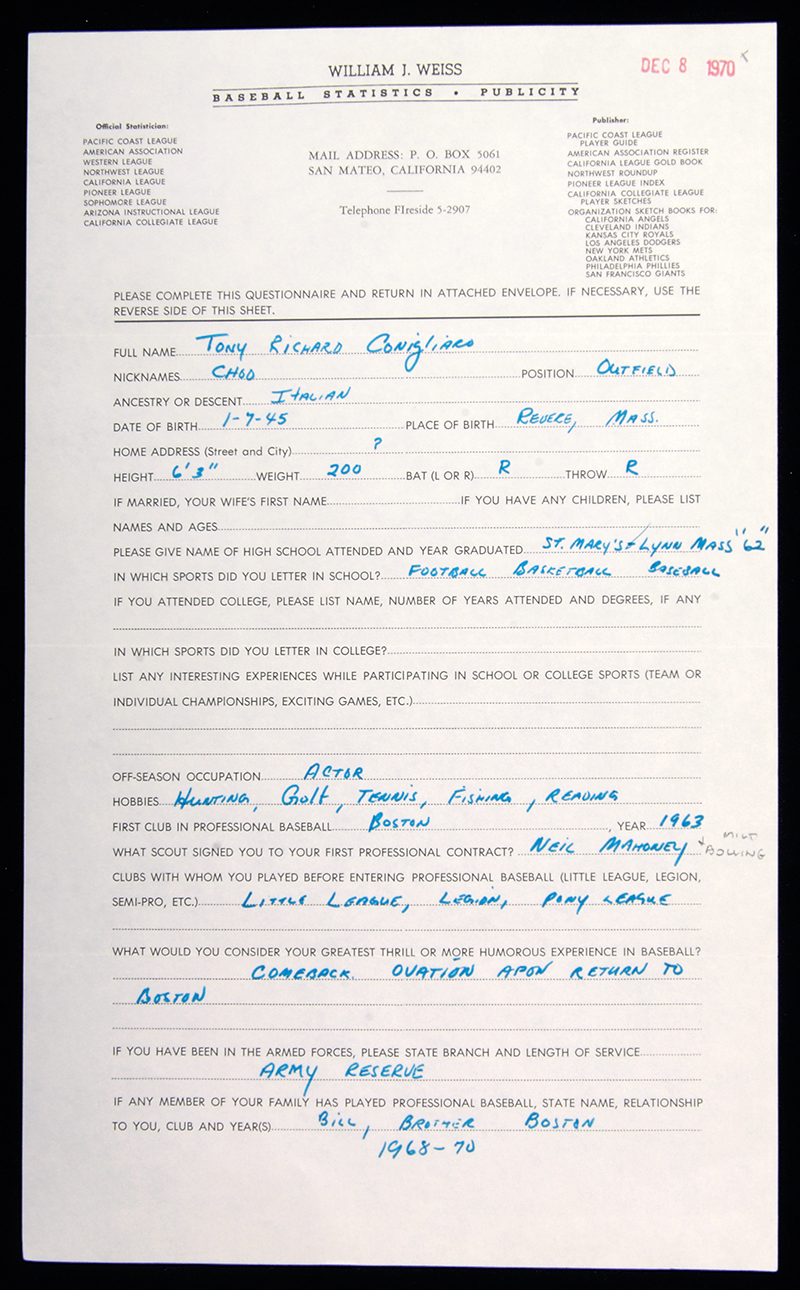 WILLIAM J. WEISS
DEC 8 1970
BASEBALL STATISTICS • PUBLICITY
Official Statistician:
PACIFIC COAST LEAGUE
AMERICAN ASSOCIATION
WESTERN LEAGUE
NORTHWEST LEAGUE
CALIFORNIA LEAGUE
PIONEER LEAGUE
SOPHOMORE LEAGUE
ARIZONA INSTRUCTIONAL LEAGUE
CALIFORNIA COLLEGIATE LEAGUE
MAIL ADDRESS: P. O. BOX 5061
SAN MATEO, CALIFORNIA 94402
Telephone FIreside 5-2907
Publisher:
PACIFIC COAST LEAGUE
PLAYER GUIDE
AMERICAN ASSOCIATION REGISTER
CALIFORNIA LEAGUE GOLD BOOK
NORTHWEST ROUNDUP
PIONEER LEAGUE INDEX
CALIFORNIA COLLEGIATE LEAGUE
PLAYER SKETCHES
ORGANIZATION SKETCH BOOKS FOR:
CALIFORNIA ANGELS
CLEVELAND INDIANS
KANSAS CITY ROYALS
LOS ANGELES DODGERS
NEW YORK METS
OAKLAND ATHLETICS
PHILADELPHIA PHILLIES
SAN FRANCISCO GIANTS
PLEASE COMPLETE THIS QUESTIONNAIRE AND RETURN IN ATTACHED ENVELOPE. IF NECESSARY, USE THE
REVERSE SIDE OF THIS SHEET.
FULL NAME Tony Richard Conigliaro
NICKNAMES CHOO POSITION OUTFIELD
ANCESTRY OR DESCENT ITALIAN
DATE OF BIRTH 1-7-45 PLACE OF BIRTH REVERE, MASS.
HOME ADDRESS (Street and City) ?
HEIGHT 6'3" WEIGHT 200 BAT (L OR R) R THROW R
IF MARRIED, YOUR WIFE'S FIRST NAME IF YOU HAVE ANY CHILDREN, PLEASE LIST
NAMES AND AGES
PLEASE GIVE NAME OF HIGH SCHOOL ATTENDED AND YEAR GRADUATED ST. MARY'S LYNN MASS "62"
IN WHICH SPORTS DID YOU LETTER IN SCHOOL? FOOTBALL BASKETBALL BASEBALL
IF YOU ATTENDED COLLEGE, PLEASE LIST NAME, NUMBER OF YEARS ATTENDED AND DEGREES, IF ANY
IN WHICH SPORTS DID YOU LETTER IN COLLEGE?
LIST ANY INTERESTING EXPERIENCES WHILE PARTICIPATING IN SCHOOL OR COLLEGE SPORTS (TEAM OR
INDIVIDUAL CHAMPIONSHIPS, EXCITING GAMES, ETC.)
OFF-SEASON OCCUPATION ACTOR
HOBBIES HUNTING, Golf, TENNIS, FISHING, READING
FIRST CLUB IN PROFESSIONAL BASEBALL BOSTON, YEAR 1963
WHAT SCOUT SIGNED YOU TO YOUR FIRST PROFESSIONAL CONTRACT? NEIL MAHONEY + MILT BOLLING
CLUBS WITH WHOM YOU PLAYED BEFORE ENTERING PROFESSIONAL BASEBALL (LITTLE LEAGUE, LEGION,
SEMI-PRO, ETC.) LITTLE LEAGUE, LEGION, PONY LEAGUE
WHAT WOULD YOU CONSIDER YOUR GREATEST THRILL OR MORE HUMOROUS EXPERIENCE IN BASEBALL?
COMEBACK. OVATION APON RETURN TO
BOSTON
IF YOU HAVE BEEN IN THE ARMED FORCES, PLEASE STATE BRANCH AND LENGTH OF SERVICE
ARMY RESERVE
IF ANY MEMBER OF YOUR FAMILY HAS PLAYED PROFESSIONAL BASEBALL, STATE NAME, RELATIONSHIP
TO YOU, CLUB AND YEAR(S) BILL, BROTHER BOSTON
1968-70